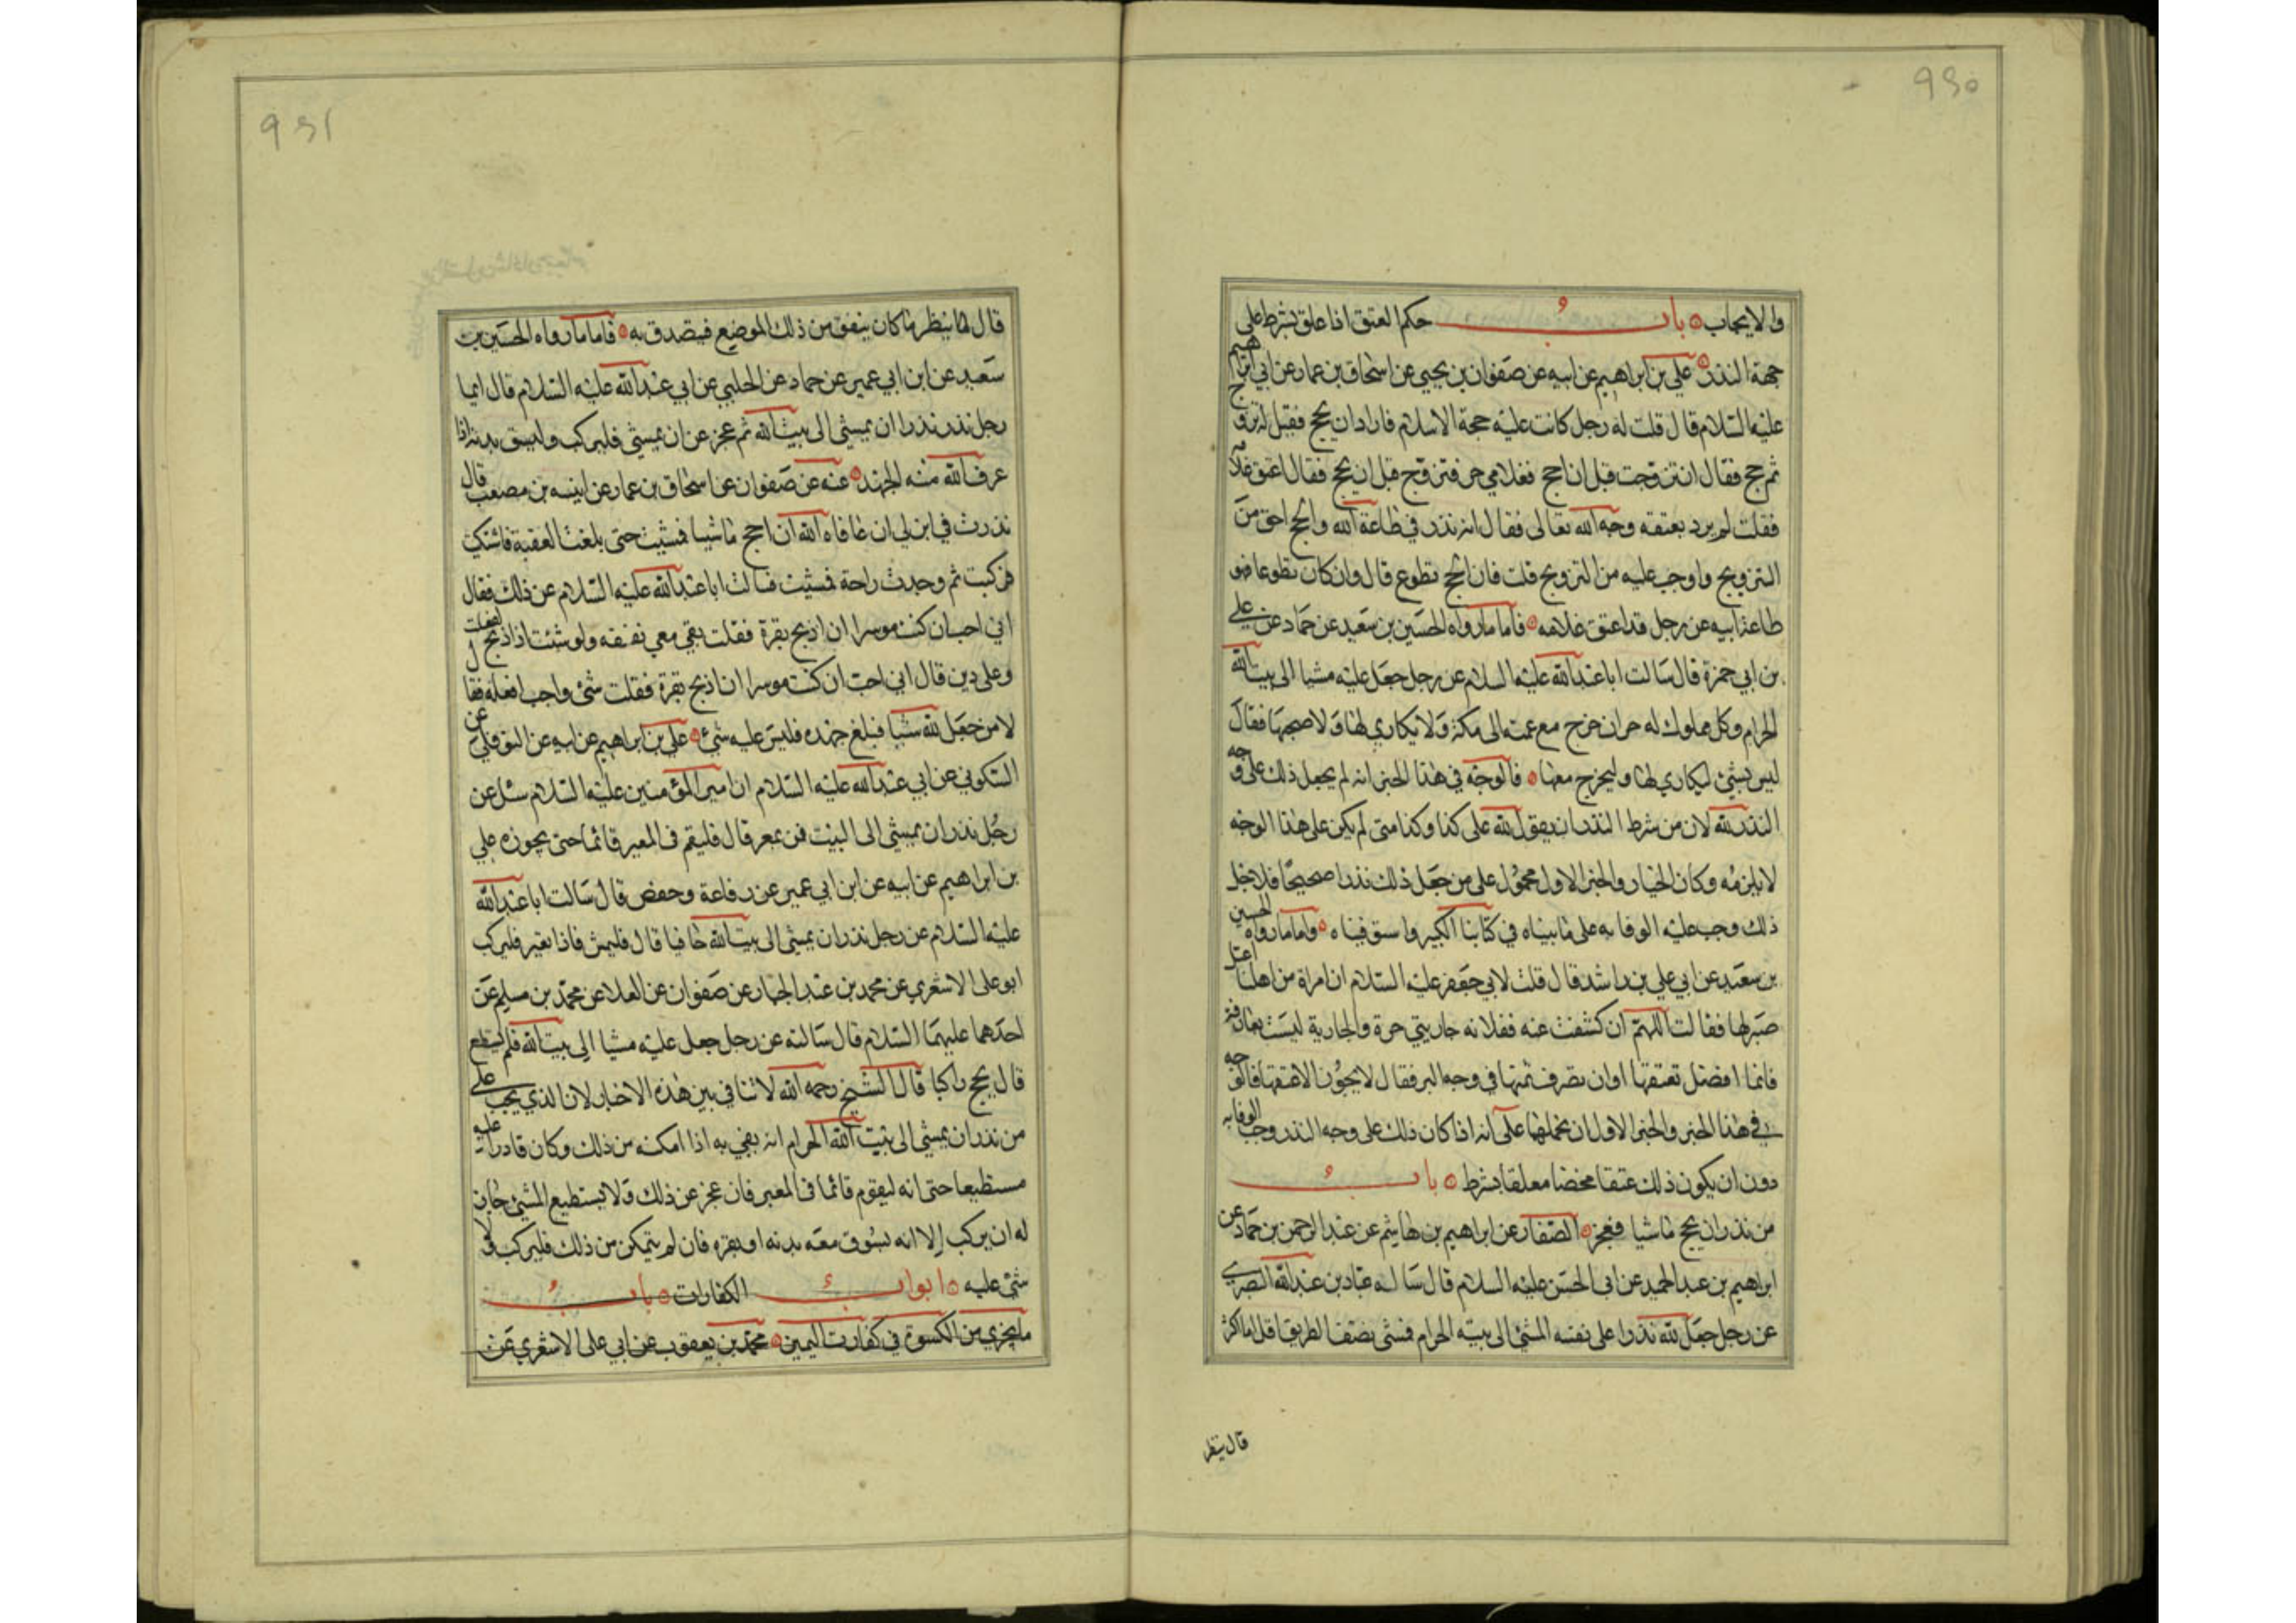 ۹۵۰
والايجاب باب حكم العتق اذا علق بشرط على
جهة النذر علي بن ابراهيم عن ابيه عن صفوان بن يحيي عن اسحاق بن عمار عن ابي ابراهيم
عليه السلام قال قلت له رجل كانت عليه حجة الاسلام فاراد ان يحج فقيل له تزوج
ثم حج فقال ان تزوجت قبل ان احج فغلامي حر فتزوج قبل ان يحج فقال اعتق غلامه
فقلت لم يرد بعتقه وجه الله تعالى فقال انه نذر في طاعة الله والحج احق من
التزويج واوجب عليه من التزويج قلت فان الحج تطوع قال وان كان تطوعا فهو
طاعة لله عن رجل قد اعتق غلامه فاما ما رواه الحسين بن سعيد عن حماد عن علي
بن ابي حمزة قال سالت ابا عبد الله عليه السلام عن رجل جعل عليه مشيا الى بيت الله
الحرام وكل مملوك له حر ان خرج مع عمته الى مكة ولا يكاري لها ولا صحبها فقال
ليس بشئ ليكاري لها وليخرج معها فالوجه في هذا الخبر انه لم يجعل ذلك على وجه
النذر لله لان من شرط النذر ان يقول لله على كذا وكذا متى لم يكن على هذا الوجه
لا يلزمه وكان الخيار والخبر الاول محمول على من جعل ذلك نذرا صحيحا فلاجل
ذلك وجب عليه الوفا به على ما بيناه في كتابنا الكبير واستوفيناه واما ما رواه الحسين
بن سعيد عن ابي علي بن راشد قال قلت لابي جعفر عليه السلام ان امراة من اهلنا اعتل
صبي لها فقالت اللهم ان كشفت عنه ففلانه جاريتي حرة والجارية ليست بعارفة
فانما افضل تعتقها او ان تصرف ثمنها في وجه البر فقال لا يجوز الا عتقها فالوجه
في هذا الخبر والخبر الاول ان نحملها على انه اذا كان ذلك على وجه النذر وجب الوفا به
دون ان يكون ذلك عتقا محضا معلقا بشرط باب
من نذر ان يحج ماشيا فعجز الصفار عن ابراهيم بن هاشم عن عبد الرحمن بن حماد عن
ابراهيم بن عبد الحميد عن ابي الحسن عليه السلام قال ساله عباد بن عبد الله البصري
عن رجل جعل لله نذرا على نفسه المشي الى بيته الحرام فمشى نصف الطريق اقل او اكثر
قال ينظر
۹۵۱
قال ينظر ما كان ينفق من ذلك الموضع فيتصدق به فاما ما رواه الحسين بن
سعيد عن ابن ابي عمير عن حماد عن الحلبي عن ابي عبد الله عليه السلام قال ايما
رجل نذر نذرا ان يمشي الى بيت الله ثم عجز عن ان يمشي فليركب وليسق بدنة اذا
عرف الله منه الجهد عنه عن صفوان عن اسحاق بن عمار عن عنبسه بن مصعب قال
نذرت في ابن لي ان عافاه الله ان احج ماشيا فمشيت حتى بلغت العقبة فاشتكيت
فركبت ثم وجدت راحة فمشيت فسالت ابا عبد الله عليه السلام عن ذلك فقال
اني احب ان كنت موسرا ان اذبح بقرة فقلت بقي معي نفقه ولو شئت ان اذبح لفعلت
وعلى دين قال اني احب ان كنت موسرا ان اذبح بقرة فقلت شئ واجب افعله فقال
لا من جعل لله شيا فبلغ جهده فليس عليه شئ علي بن ابراهيم عن ابيه عن النوفلي عن
السكوني عن ابي عبد الله عليه السلام ان امير المؤمنين عليه السلام سئل عن
رجل نذر ان يمشي الى البيت فمر بمعبر قال فليقم في المعبر قائما حتى يجوزه علي
بن ابراهيم عن ابيه عن ابن ابي عمير عن رفاعة وحفص قال سالت ابا عبد الله
عليه السلام عن رجل نذر ان يمشي الى بيت الله حافيا قال فليمش فاذا تعب فليركب
ابو علي الاشعري عن محمد بن عبد الجبار عن صفوان عن العلا عن محمد بن مسلم عن
احدهما عليهما السلام قال سالته عن رجل جعل عليه مشيا الى بيت الله فلم يستطع
قال يحج راكبا قال الشيخ رحمه الله لا تنافي بين هذه الاخبار لان الذي يجب على
من نذر ان يمشي الى بيت الله الحرام انه يفي به اذا امكنه من ذلك وكان قادرا عليه
مستطيعا حتى انه ليقوم قائما في المعبر فان عجز عن ذلك ولا يستطيع المشي جاز
له ان يركب الا انه يسوق معه بدنه او بقره فان لم يتمكن من ذلك فليركب ولا
شئ عليه ابواب الكفارات باب
ما يجزي من الكسوة في كفارت اليمين محمد بن يعقوب عن ابي علي الاشعري عن